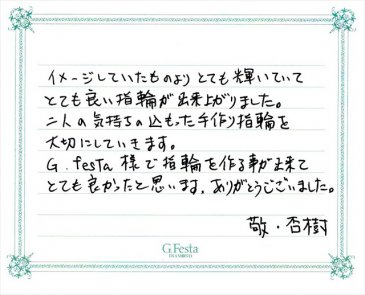 イメージしていたものよりとても輝いていて
とても良い指輪が出来上がりました。
二人の気持ちの込もった手作り指輪を
大切にしていきます。
G.festa 様で指輪を作る事が出来て
とても良かったと思います。ありがとうございました。
敬・杏樹
G.Festa
DIAMOND